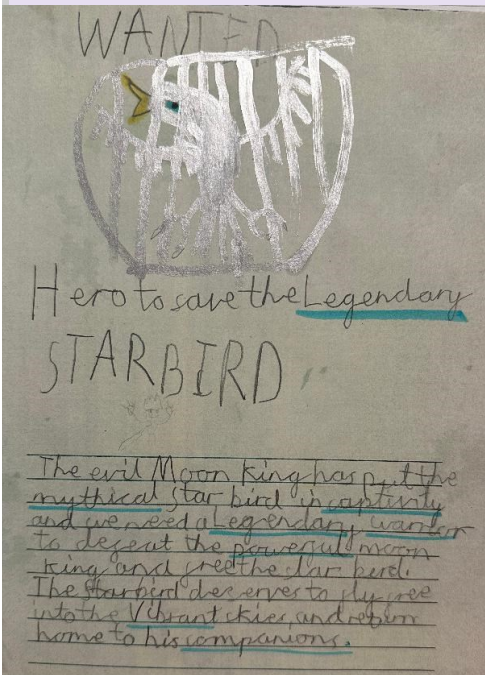 WANTED
Hero to save the Legendary
STARBIRD
The evil Moon King has put the
mythical star bird in captivity
and we need a Legendary warrior
to defeat the powerful moon
King and free the star bird.
The starbird deserves to fly free
into the Vibrant skies and return
home to his companions.